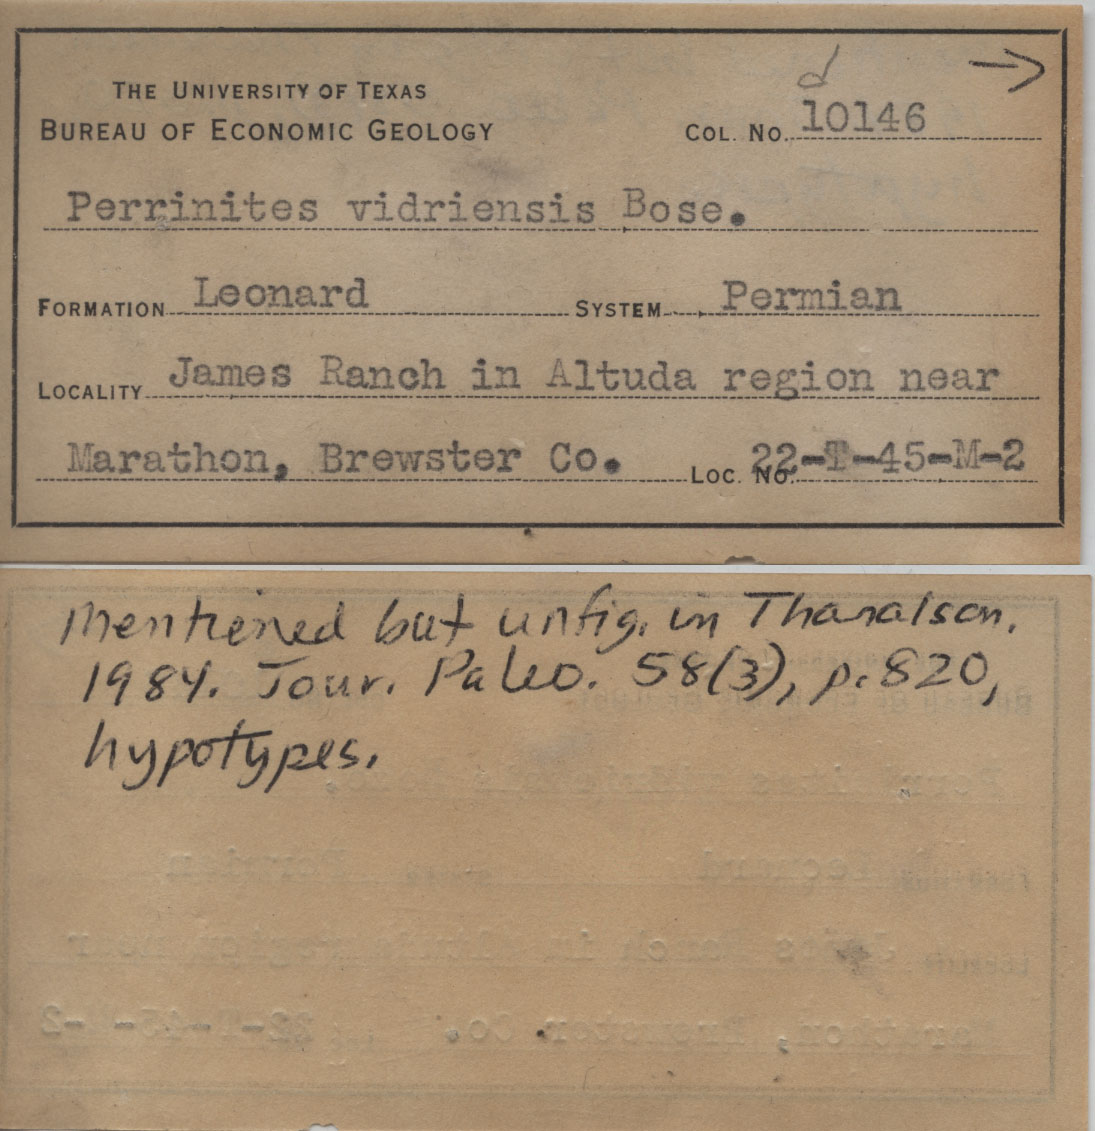 THE UNIVERSITY OF TEXAS
BUREAU OF ECONOMIC GEOLOGY
COL. NO. 10146
d
→
Perrinites vidriensis Bose.
FORMATION Leonard SYSTEM Permian
LOCALITY James Ranch in Altuda region near
Marathon, Brewster Co. LOC. NO. 22-T-45-M-2
Mentioned but unfig. in Tharalson.
1984. Jour. Paleo. 58(3), p. 820,
hypotypes.